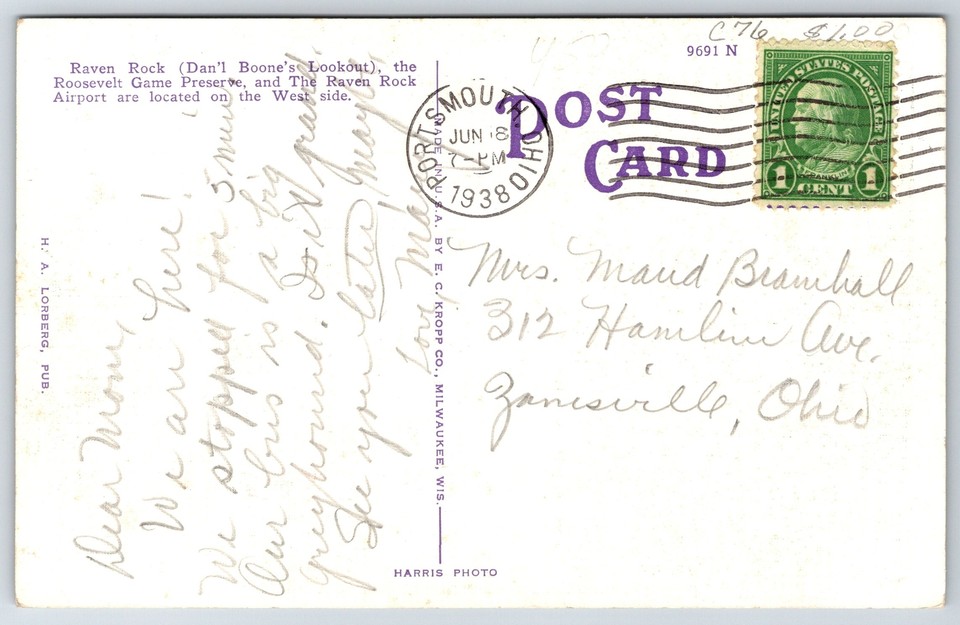 C76 $1.00
9691 N
Raven Rock (Dan'l Boone's Lookout), the
Roosevelt Game Preserve, and The Raven Rock
Airport are located on the West side.
POST
CARD
PORTSMOUTH OHIO
JUN 18
7-PM
1938
UNITED STATES POSTAGE
FRANKLIN
1 CENT 1
Dear Mom,
We are here!
We stopped for 5 min.
Our bus is a big
greyhound. Is it grand.
See you later maybe
Love Mary
Mrs. Maud Bramhall
312 Hamline Ave.
Zanesville, Ohio
H. A. LORBERG, PUB.
MADE IN U.S.A. BY E. C. KROPP CO., MILWAUKEE, WIS.
HARRIS PHOTO